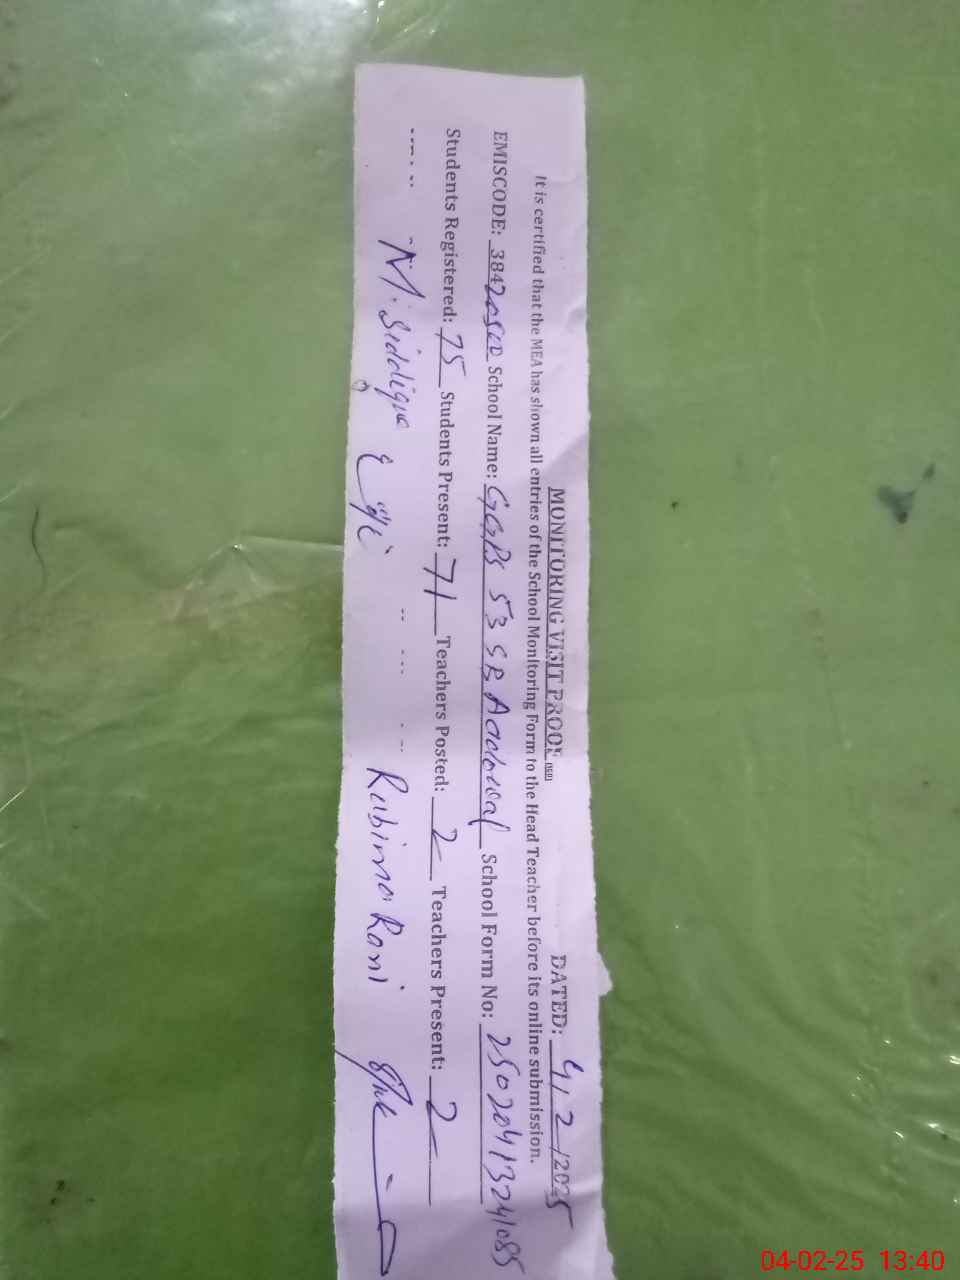 MONITORING VISIT PROOF DATED: 4/2/2025
It is certified that the MEA has shown all entries of the School Monitoring Form to the Head Teacher before its online submission.
EMISCODE: School Name: GGPS 53 SB Addowal School Form No: 2502041324085
Students Registered: 75 Students Present: 71 Teachers Posted: 2 Teachers Present: 2
M. Siddique Rubina Rani
04-02-25 13:40